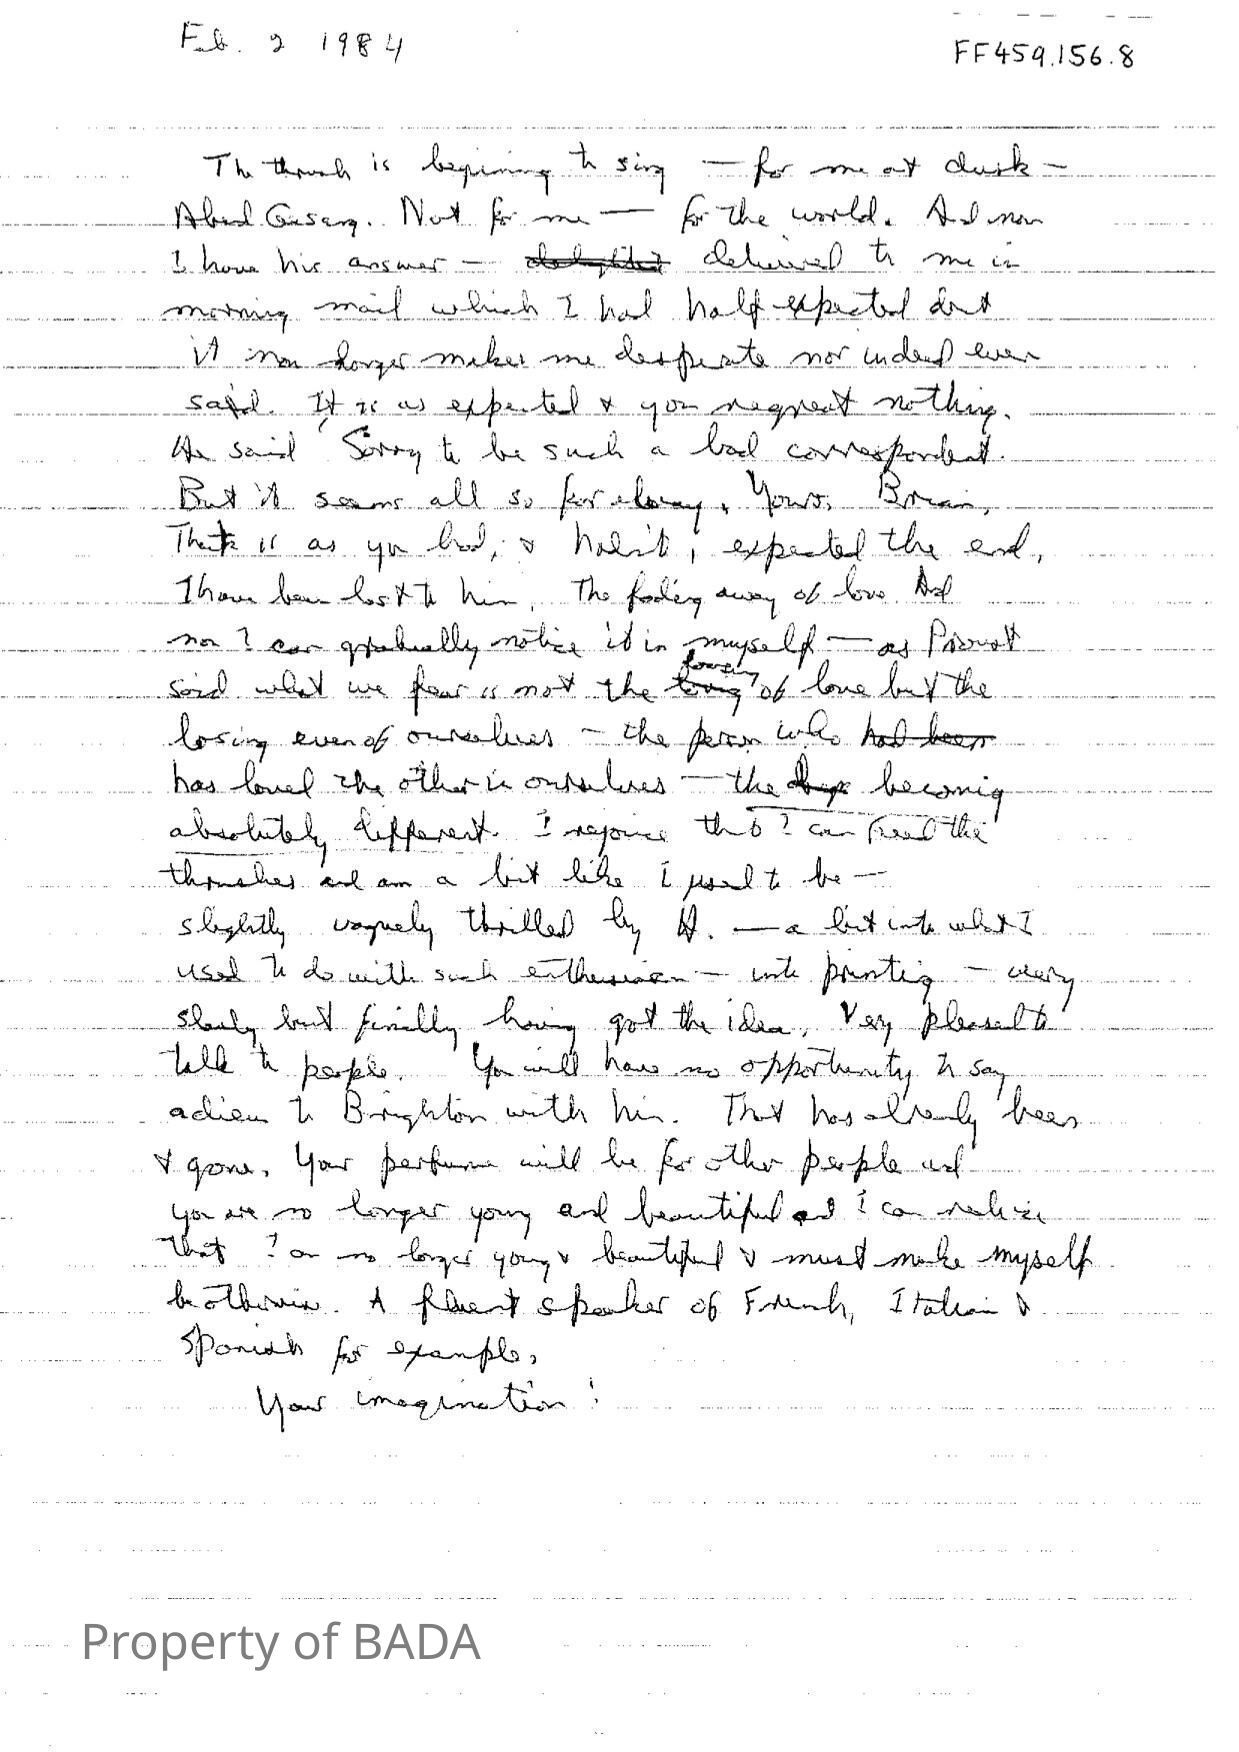 Feb. 2 1984
FF459.156.8
The thrush is beginning to sing — for me at dusk —
Not for me — for the world. And now
I have his answer — delivered to me in
morning mail which I had half expected but
it no longer makes me desperate nor indeed even
said. It is as expected & you regret nothing.
He said 'Sorry to be such a bad correspondent.
But it seems all so far away. Yours, Brian.
That is as you had, & hadn't, expected the end.
I have been lost to him. The fading away of love. And
now I can gradually notice it in myself — as Proust
said what we fear is not the losing of love but the
losing even of ourselves — the person who had been
has loved the other in ourselves — the becoming
absolutely different. I rejoice that I can feed the
thrushes and am a bit like I used to be —
slightly vaguely thrilled by A. — a bit into what I
used to do with such enthusiasm — into printing — very
slowly but finally having got the idea. Very pleased to
talk to people. You will have no opportunity to say
adieu to Brighton with him. That has already been
& gone. Your perfume will be for other people and
you are no longer young and beautiful and I can realise
that I am no longer young & beautiful & must make myself
be otherwise. A fluent speaker of French, Italian &
Spanish for example.
Your imagination!
Property of BADA